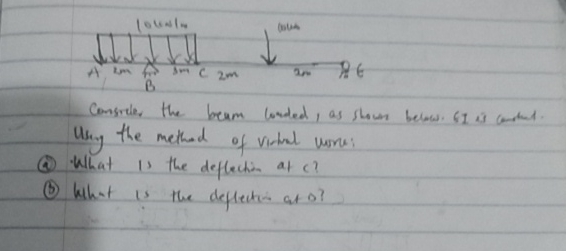 A 2m B 3m C 2m 2m E
Consider the beam loaded, as shown below. EI is constant.
Using the method of virtual work:
(a) What is the deflection at C?
(b) What is the deflection at D?